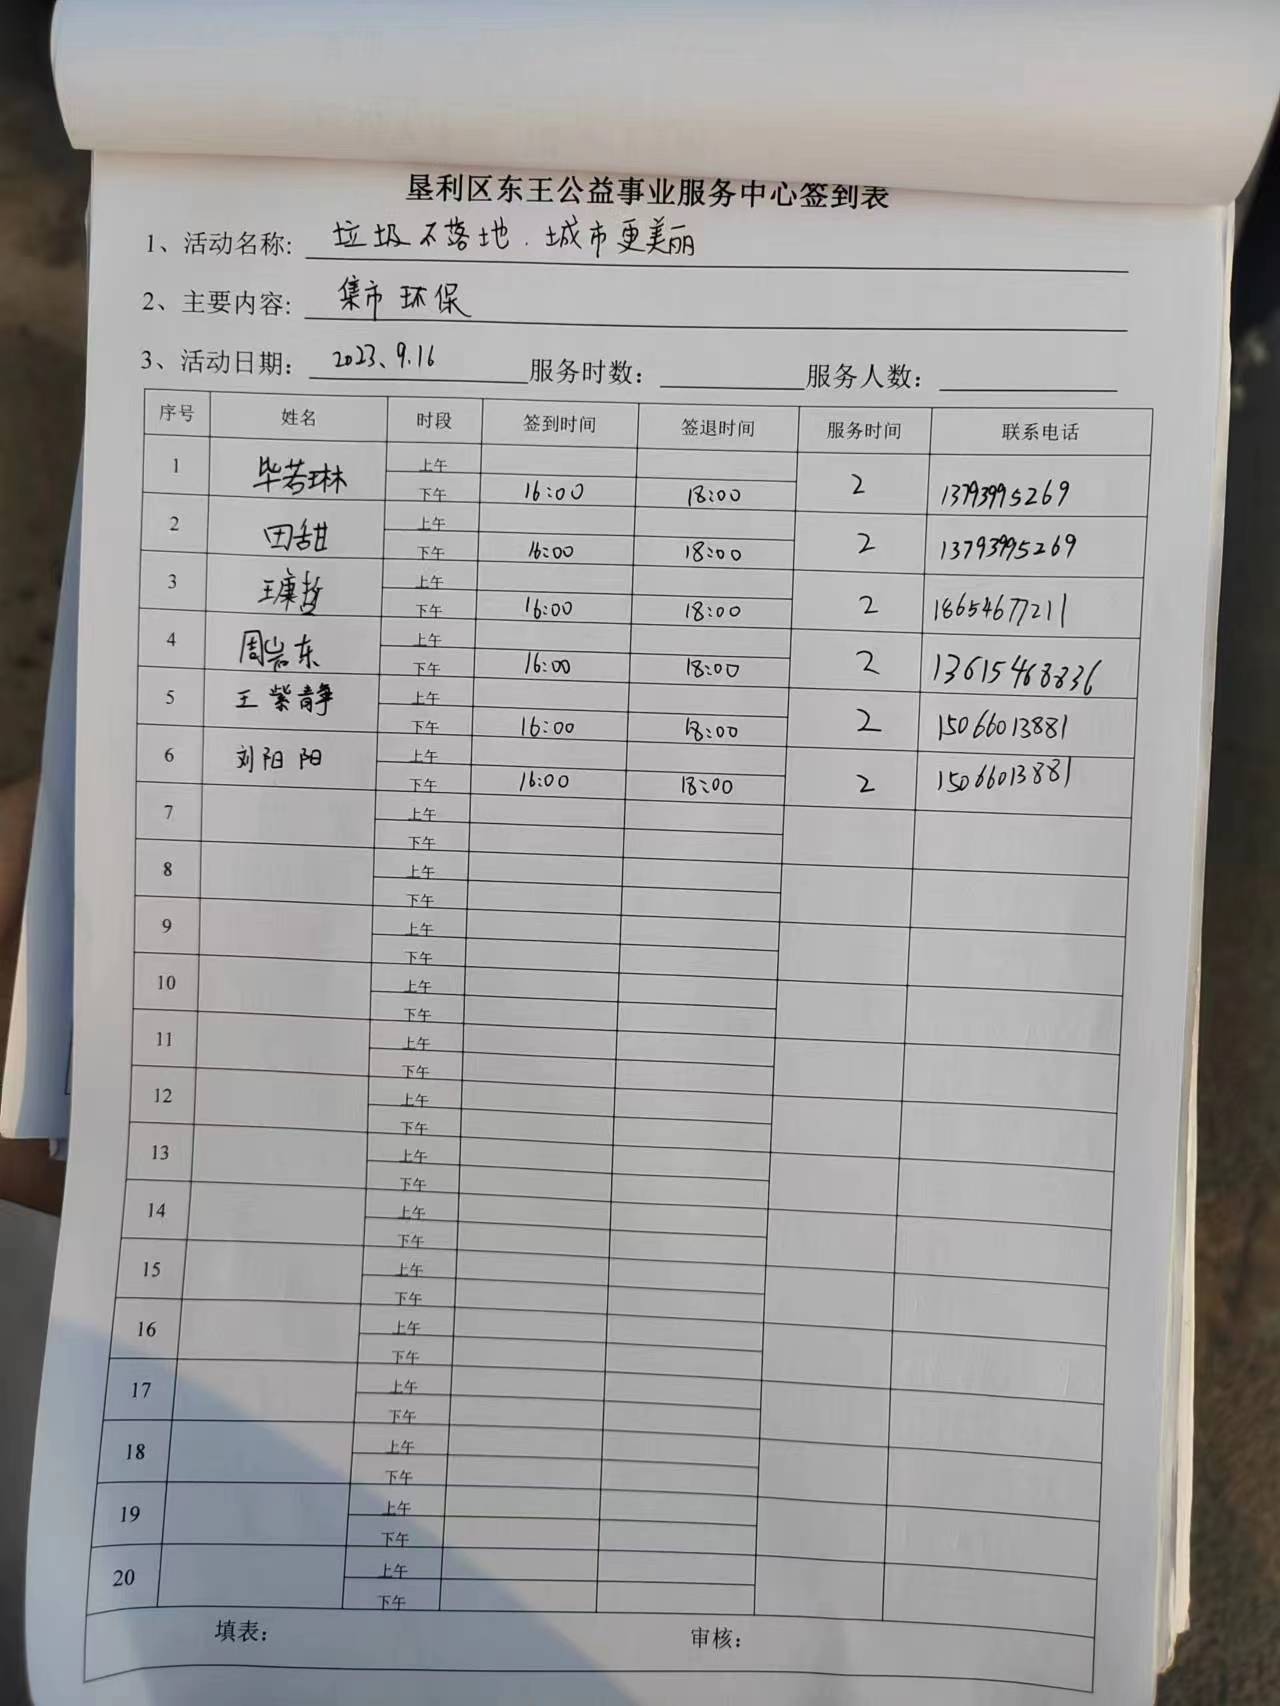 垦利区东王公益事业服务中心签到表
1、活动名称: 垃圾不落地.城市更美丽
2、主要内容: 集市环保
3、活动日期: 2023、9.16 服务时数: 服务人数:
序号 姓名 时段 签到时间 签退时间 服务时间 联系电话
1 毕若琳 上午
下午 16:00 18:00 2 13793995269
2 田甜 上午
下午 16:00 18:00 2 13793995269
3 王康哲 上午
下午 16:00 18:00 2 18654677211
4 周岩东 上午
下午 16:00 18:00 2 13615468836
5 王紫静 上午
下午 16:00 18:00 2 15066013881
6 刘阳阳 上午
下午 16:00 18:00 2 15066013881
7 上午
下午
8 上午
下午
9 上午
下午
10 上午
下午
11 上午
下午
12 上午
下午
13 上午
下午
14 上午
下午
15 上午
下午
16 上午
下午
17 上午
下午
18 上午
下午
19 上午
下午
20 上午
下午
填表: 审核: